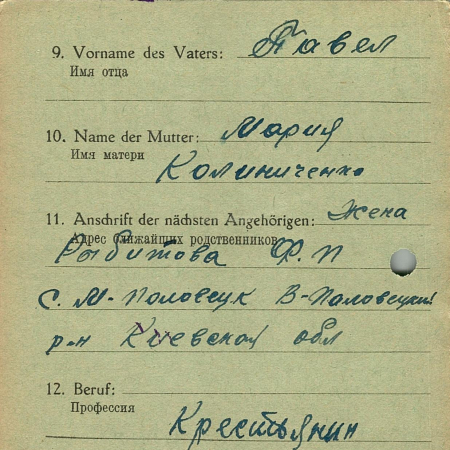 9. Vorname des Vaters: Павел
Имя отца
10. Name der Mutter: Мария
Имя матери
Калиниченко
11. Anschrift der nächsten Angehörigen: Жена
Адрес ближайших родственников
Рыбитова Ф. П
с. М-Половецк В-Половецкий
р-н Киевская обл
12. Beruf:
Профессия
Крестьянин